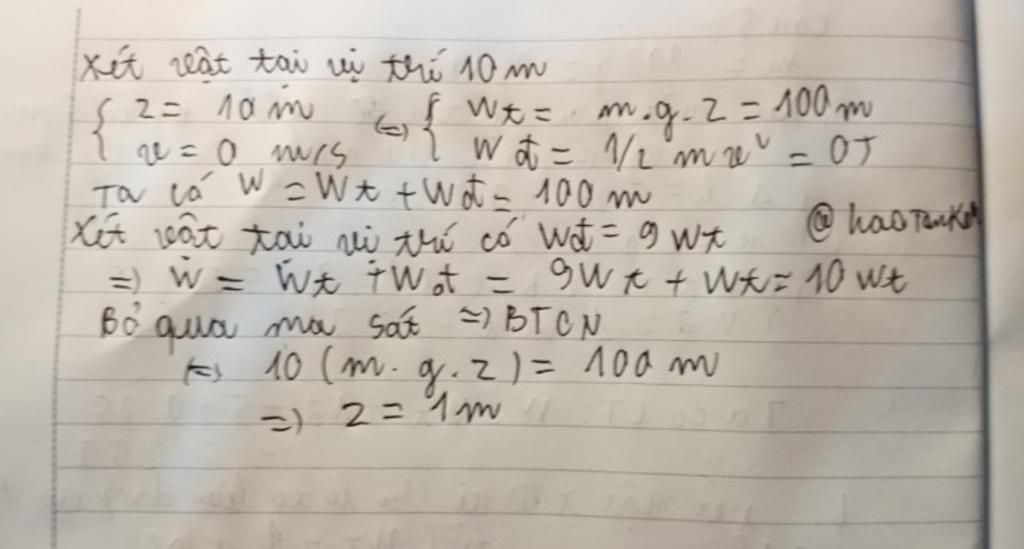 Xét vật tại vị trí 10 m
{ z = 10 m <=> { Wt = m.g.z = 100m
v = 0 m/s Wđ = 1/2 mv² = 0J
Ta có W = Wt + Wđ = 100 m
Xét vật tại vị trí có Wđ = 9 Wt @haoTanKom
=> W = Wt + Wđt = 9Wt + Wt = 10 Wt
Bỏ qua ma sát => BTCN
<=> 10 (m.g.z) = 100 m
=> z = 1m